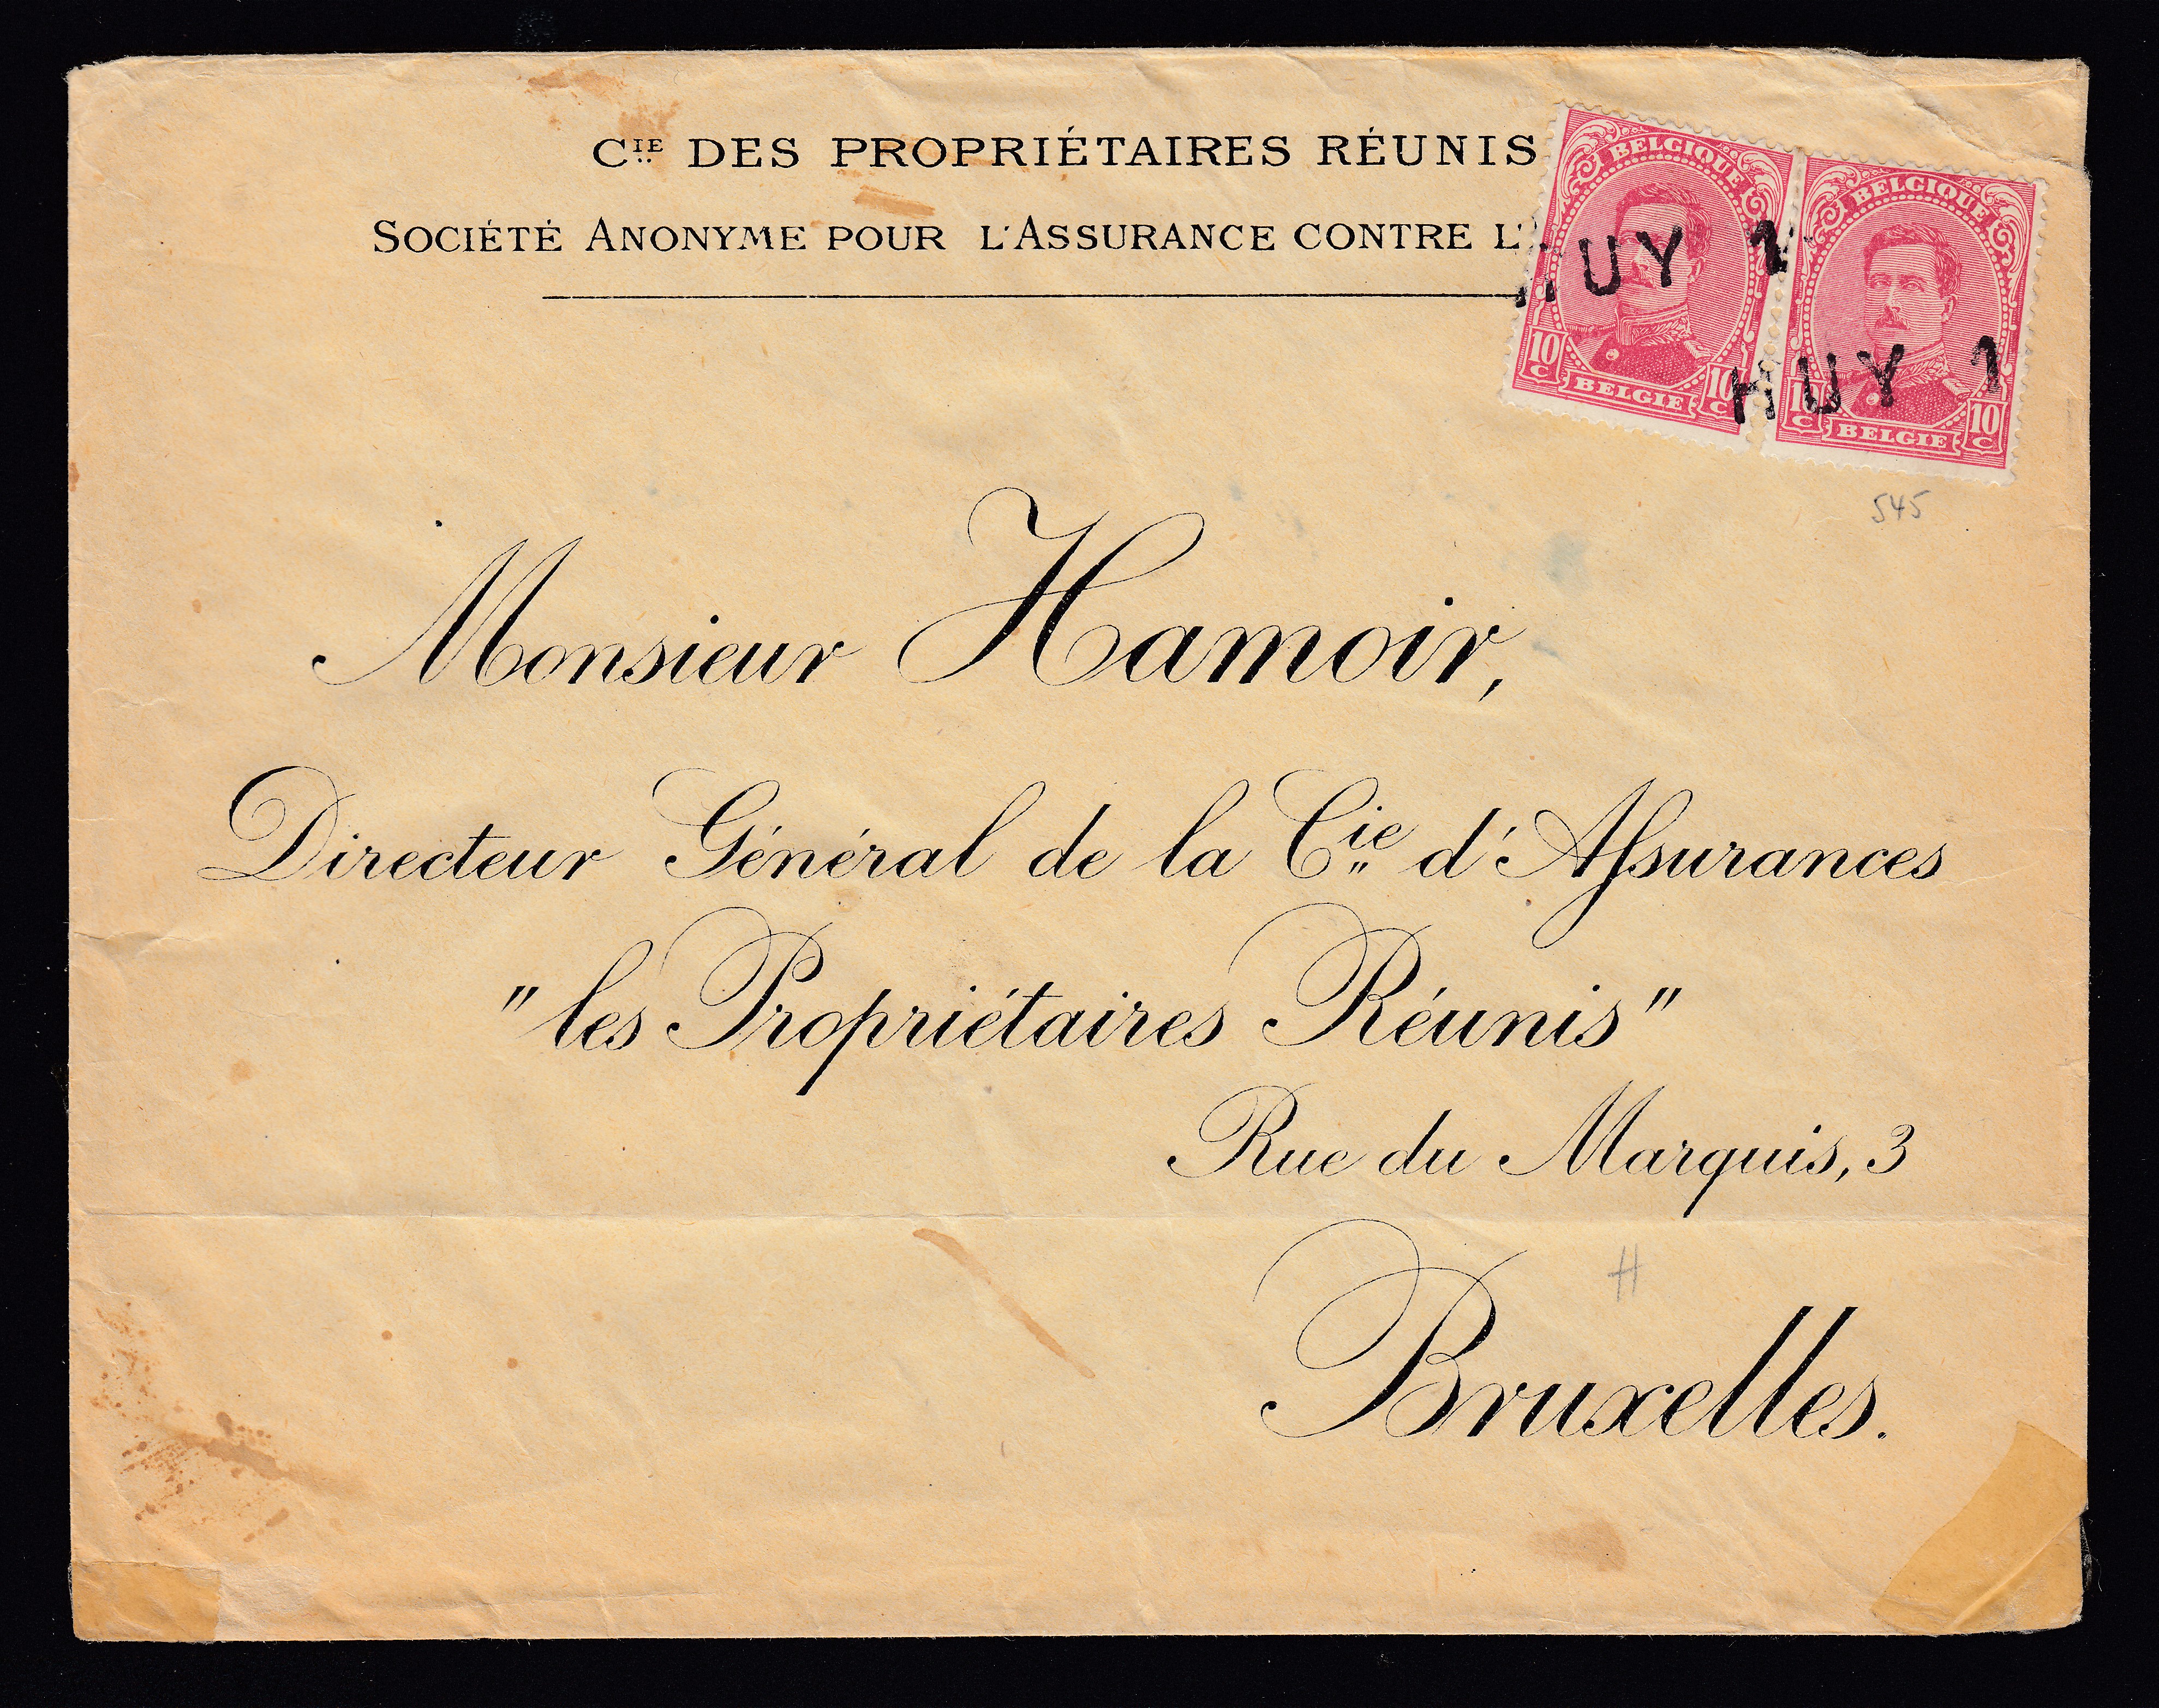 CIE DES PROPRIÉTAIRES RÉUNIS
SOCIÉTÉ ANONYME POUR L'ASSURANCE CONTRE L'
BELGIQUE
10 C BELGIE 10 C
BELGIQUE
10 C BELGIE 10 C
HUY 1
HUY 1
545
Monsieur Hamoir,
Directeur Général de la Cie d'Assurances
"les Propriétaires Réunis"
Rue du Marquis, 3
H
Bruxelles.